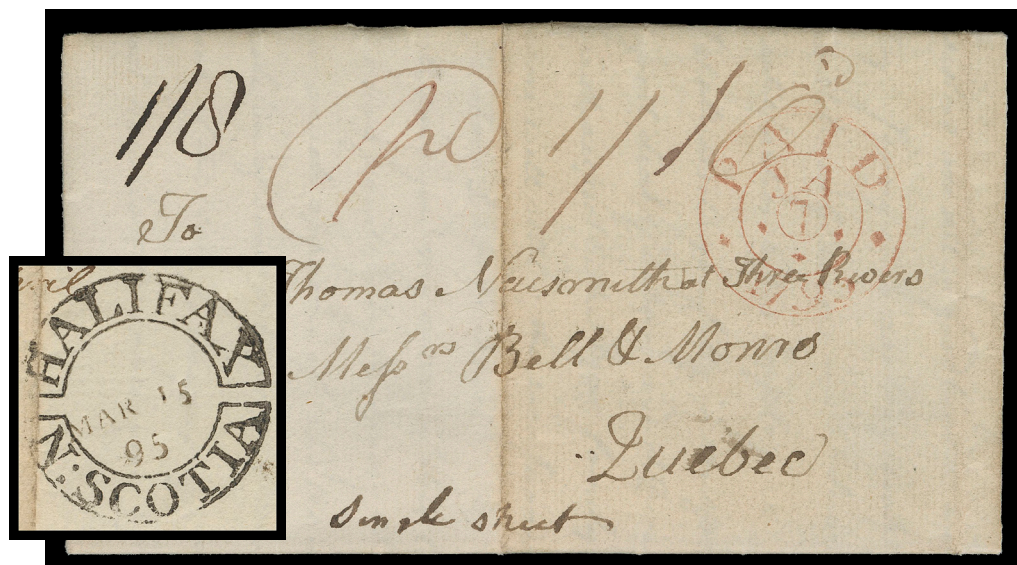 1/8 1/1
PAID
JA
7
To
Thomas Naismith at Three Rivers
Messrs Bell & Monro
Quebec
Single sheet
HALIFAX
MAR 15
95
N:SCOTIA